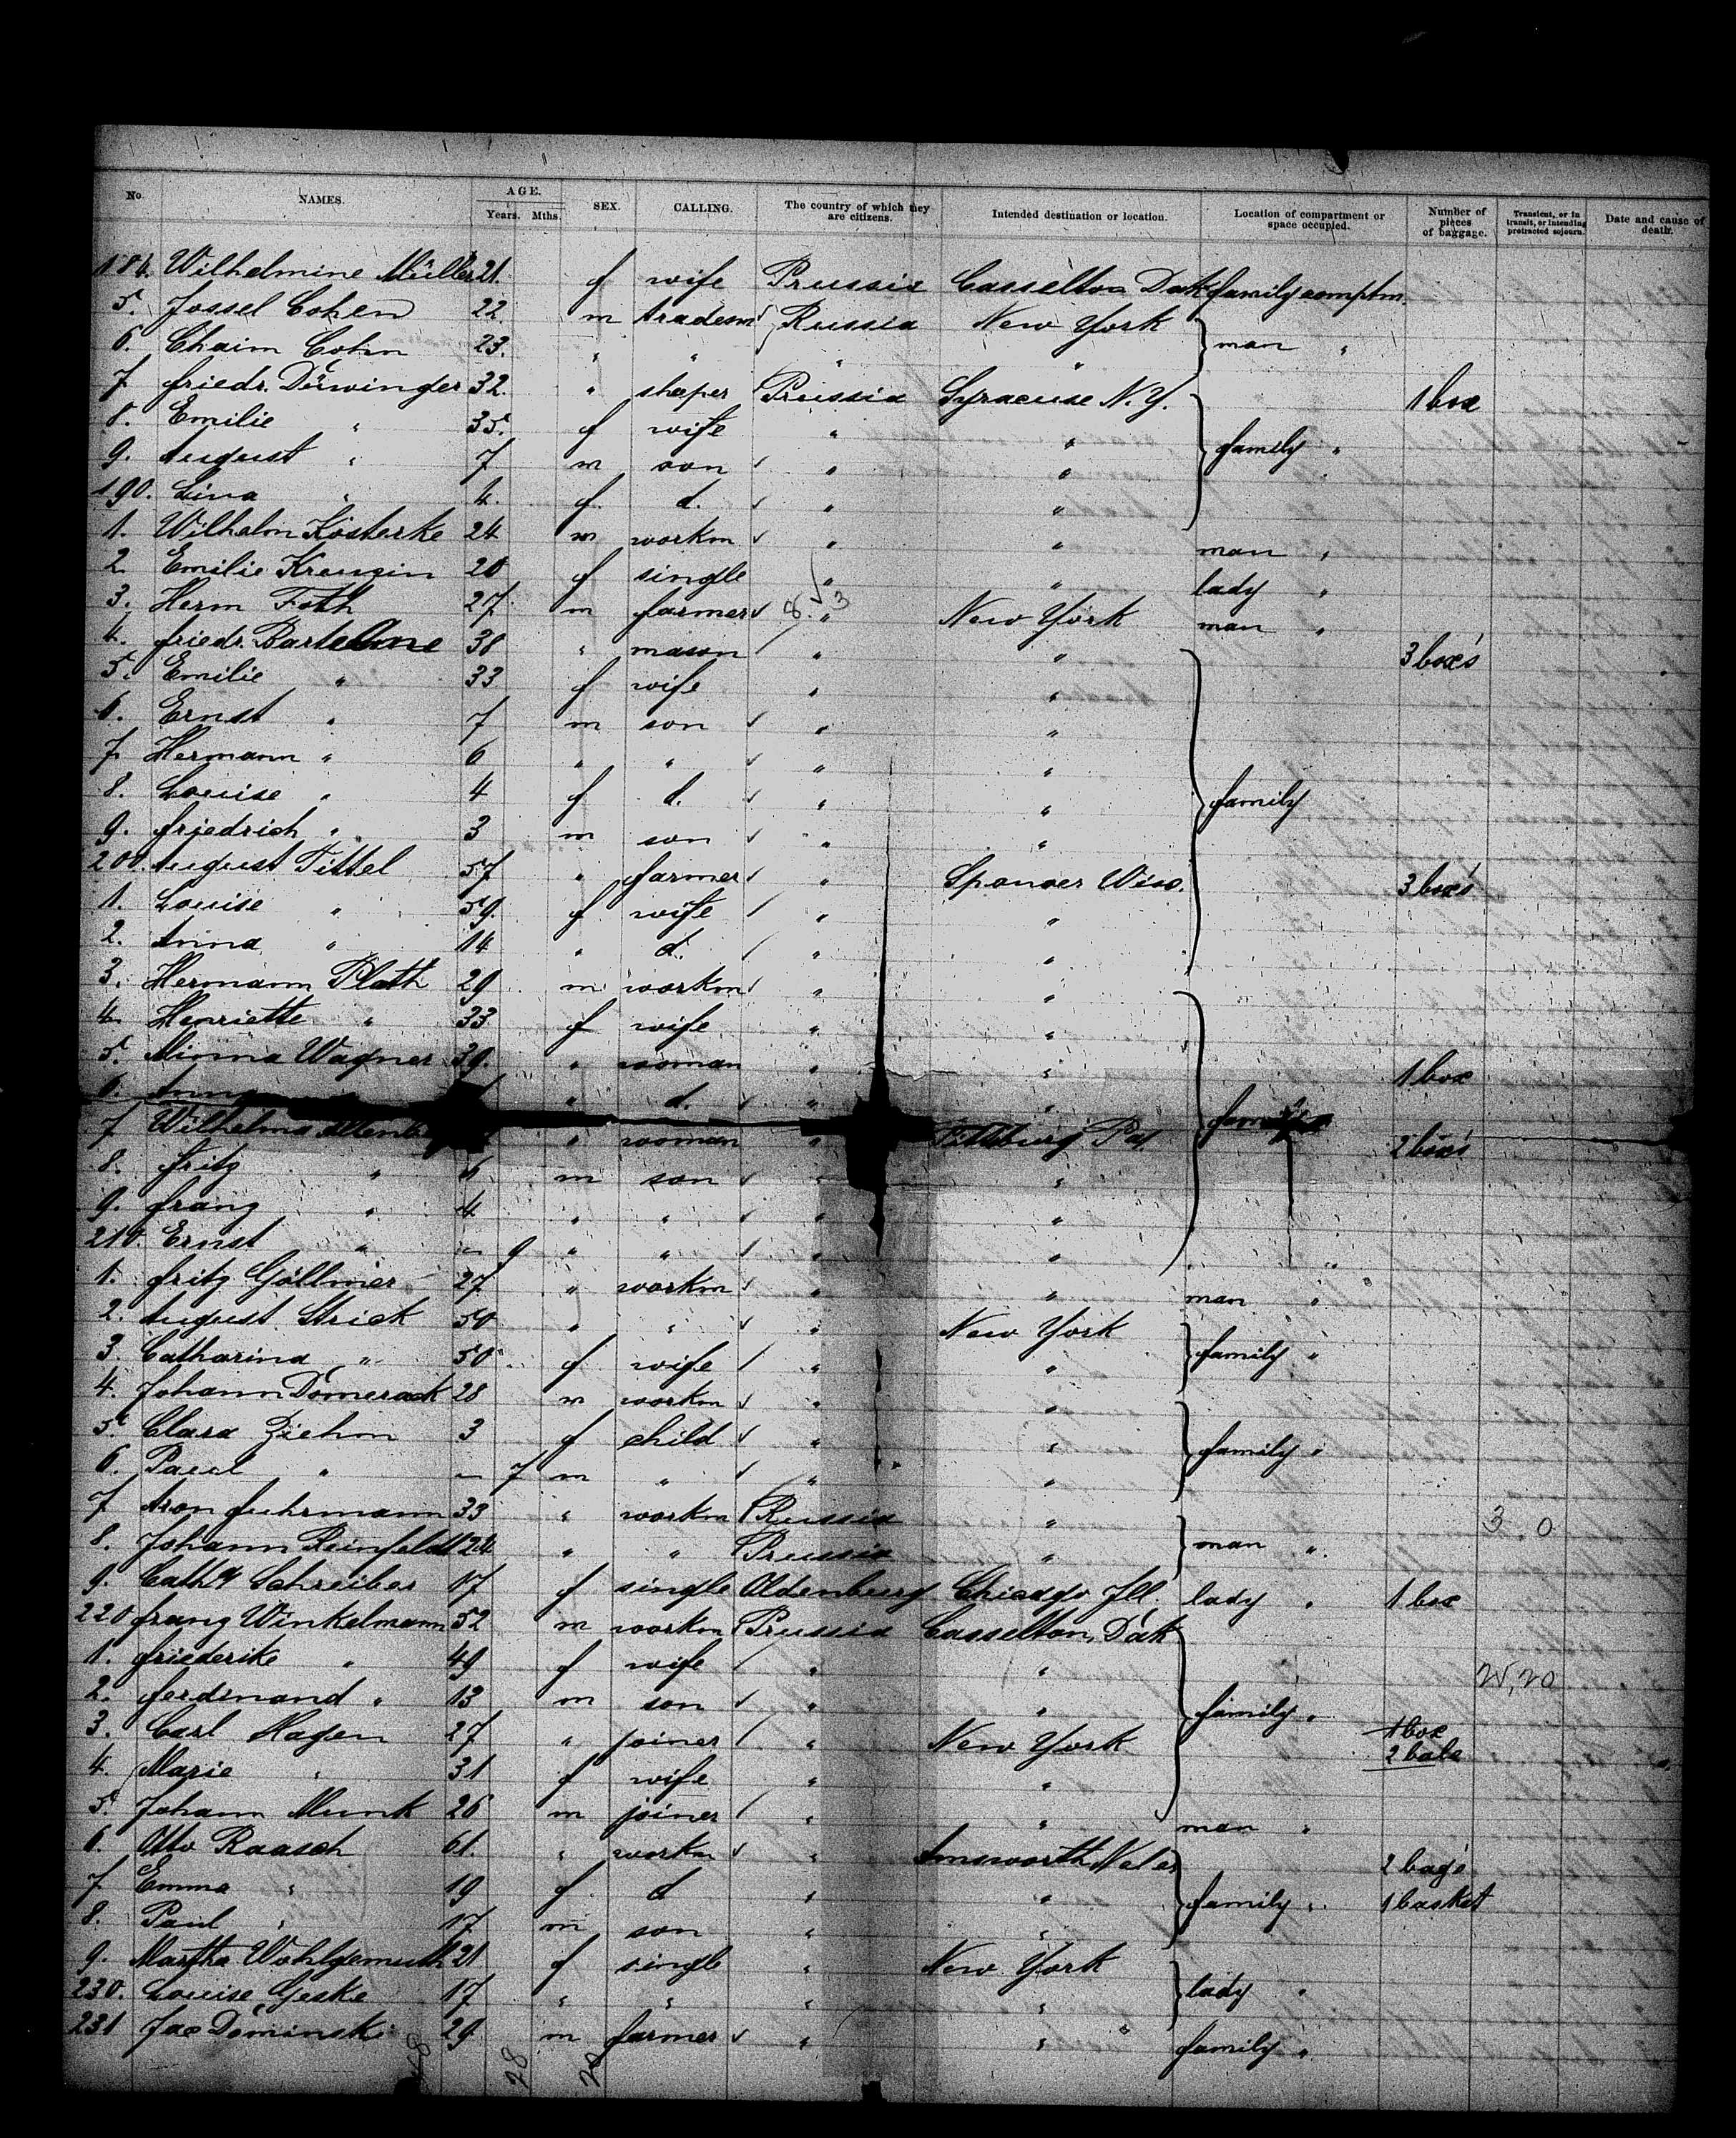 No. NAMES. AGE. Years. Mths. SEX. CALLING. The country of which they are citizens. Intended destination or location. Location of compartment or space occupied. Number of pieces of baggage. Transient, or in transit, or intending protracted sojourn. Date and cause of death.
184. Wilhelmine Müller 21. f wife Prussia Casselton Dak family comptm.
5. Jossel Cohen 22. m tradesm Russia New York man "
6. Chaim Cohn 23. " " " "
7 Friedr. Düwinger 32. " Prussia Syracuse N.Y. 1 box
8. Emilie " 35. f wife " " family "
9. August " 7 m son " "
190. Lina " 4. f d. " "
1. Wilhelm Kosterke 24 m workm " " man "
2 Emilie Kreugin 20 f single " " lady "
3. Herm Foth 27. m farmer " New York man "
8. 3
4. Friedr. 38 " mason " " 3 box's
5. Emilie " 33 f wife " "
6. Ernst " 7 m son " "
7 Hermann " 6 " " " "
8. Louise " 4 f d. " " family
9. Friedrich " 3 m son " "
200. August Tittel 57 " farmer " Wisc. 3 box's
1. Louise " 59. f wife " "
2. Anna " 14 " d. " "
3. Hermann Plath 29 m workm " "
4. Henriette " 33 f wife " "
5. Minna Wagner 39. " woman " " 1 box
6. Anna " d. " "
7 " woman " Pittsburg Pa. 2 box's
8. Fritz " 6 m son " "
9. Franz " 4 " " " "
210. Ernst " – 9 " " " "
1. Fritz Göllmer 27 " workm " " man "
2. August Strick 50 " " " New York
3. Catharina " 50 f wife " " family "
4. Johann Domerack 28 m workm " "
5. Clara Ziehm 3 f child " " family "
6. Paul " – 7 m " " "
7 Aron Fuhrmann 33 " workm Russia " 3 0
8. Johann Reinfeldt 24 " " Prussia " man "
9. Cath. Schreiber 17 f single Oldenburg Chicago Ill. lady " 1 box
220 Franz Winkelmann 52 m workm Prussia Casselton, Dak
1. Friederike " 49 f wife " "
2. Ferdinand " 13 m son " " family "
3. Carl Hagen 27 " joiner " New York 1 box
2 bale
4. Marie " 31 f wife " "
5. Johann Munk 26 m joiner " " man "
6. Otto Raasch 61. " workm " 2 bags
7 Emma " 19 f d " " family " 1 basket
8. Paul " 17 m son " "
9. Martha Wohlgemuth 21 f single " New York
230. Louise Geske 17 " " " " lady "
231 Jac Dominski 29 m farmer " " " family "
28